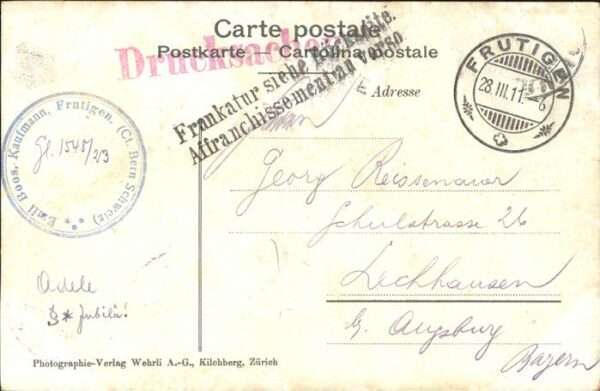 Carte postale
Postkarte — Cartolina postale
Drucksache
Frankatur siehe Rückseite.
Affranchissement au verso
Adresse
FRUTIGEN
28.III.11.
Emil Boos, Kaufmann, Frutigen, (Ct. Bern Schweiz)
Gl. 1548/23
Georg Reissenauer
Schulstrasse 26
Lechhausen
b. Augsburg
Bayern
Adele
Jubilä!
Photographie-Verlag Wehrli A.-G., Kilchberg, Zürich